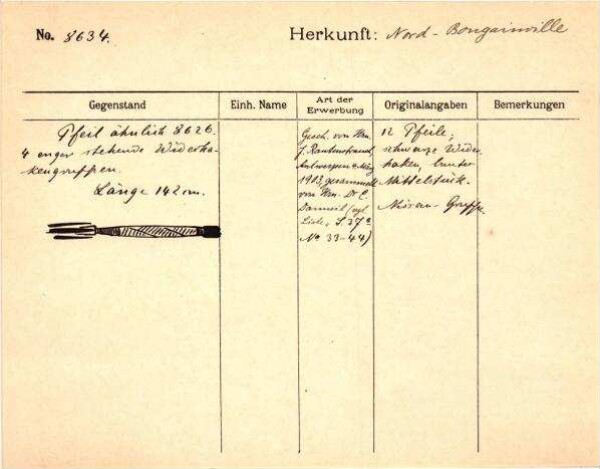 No. 8634.
Herkunft: Nord-Bougainville
Gegenstand
Einh. Name
Art der
Erwerbung
Originalangaben
Bemerkungen
Pfeil ähnlich 8626.
4 enger stehende Widerha-
kengruppen.
Länge 142 cm.
Gesch. von Hrn.
J. Rautenstrauch,
Antwerpen
1903, gesammelt
von Hrn. Dr. E.
Danneil (vgl.
Liste, S. 37
No 33-44)
12 Pfeile,
schwarze Wider-
haken, bunter
Mittelstück.